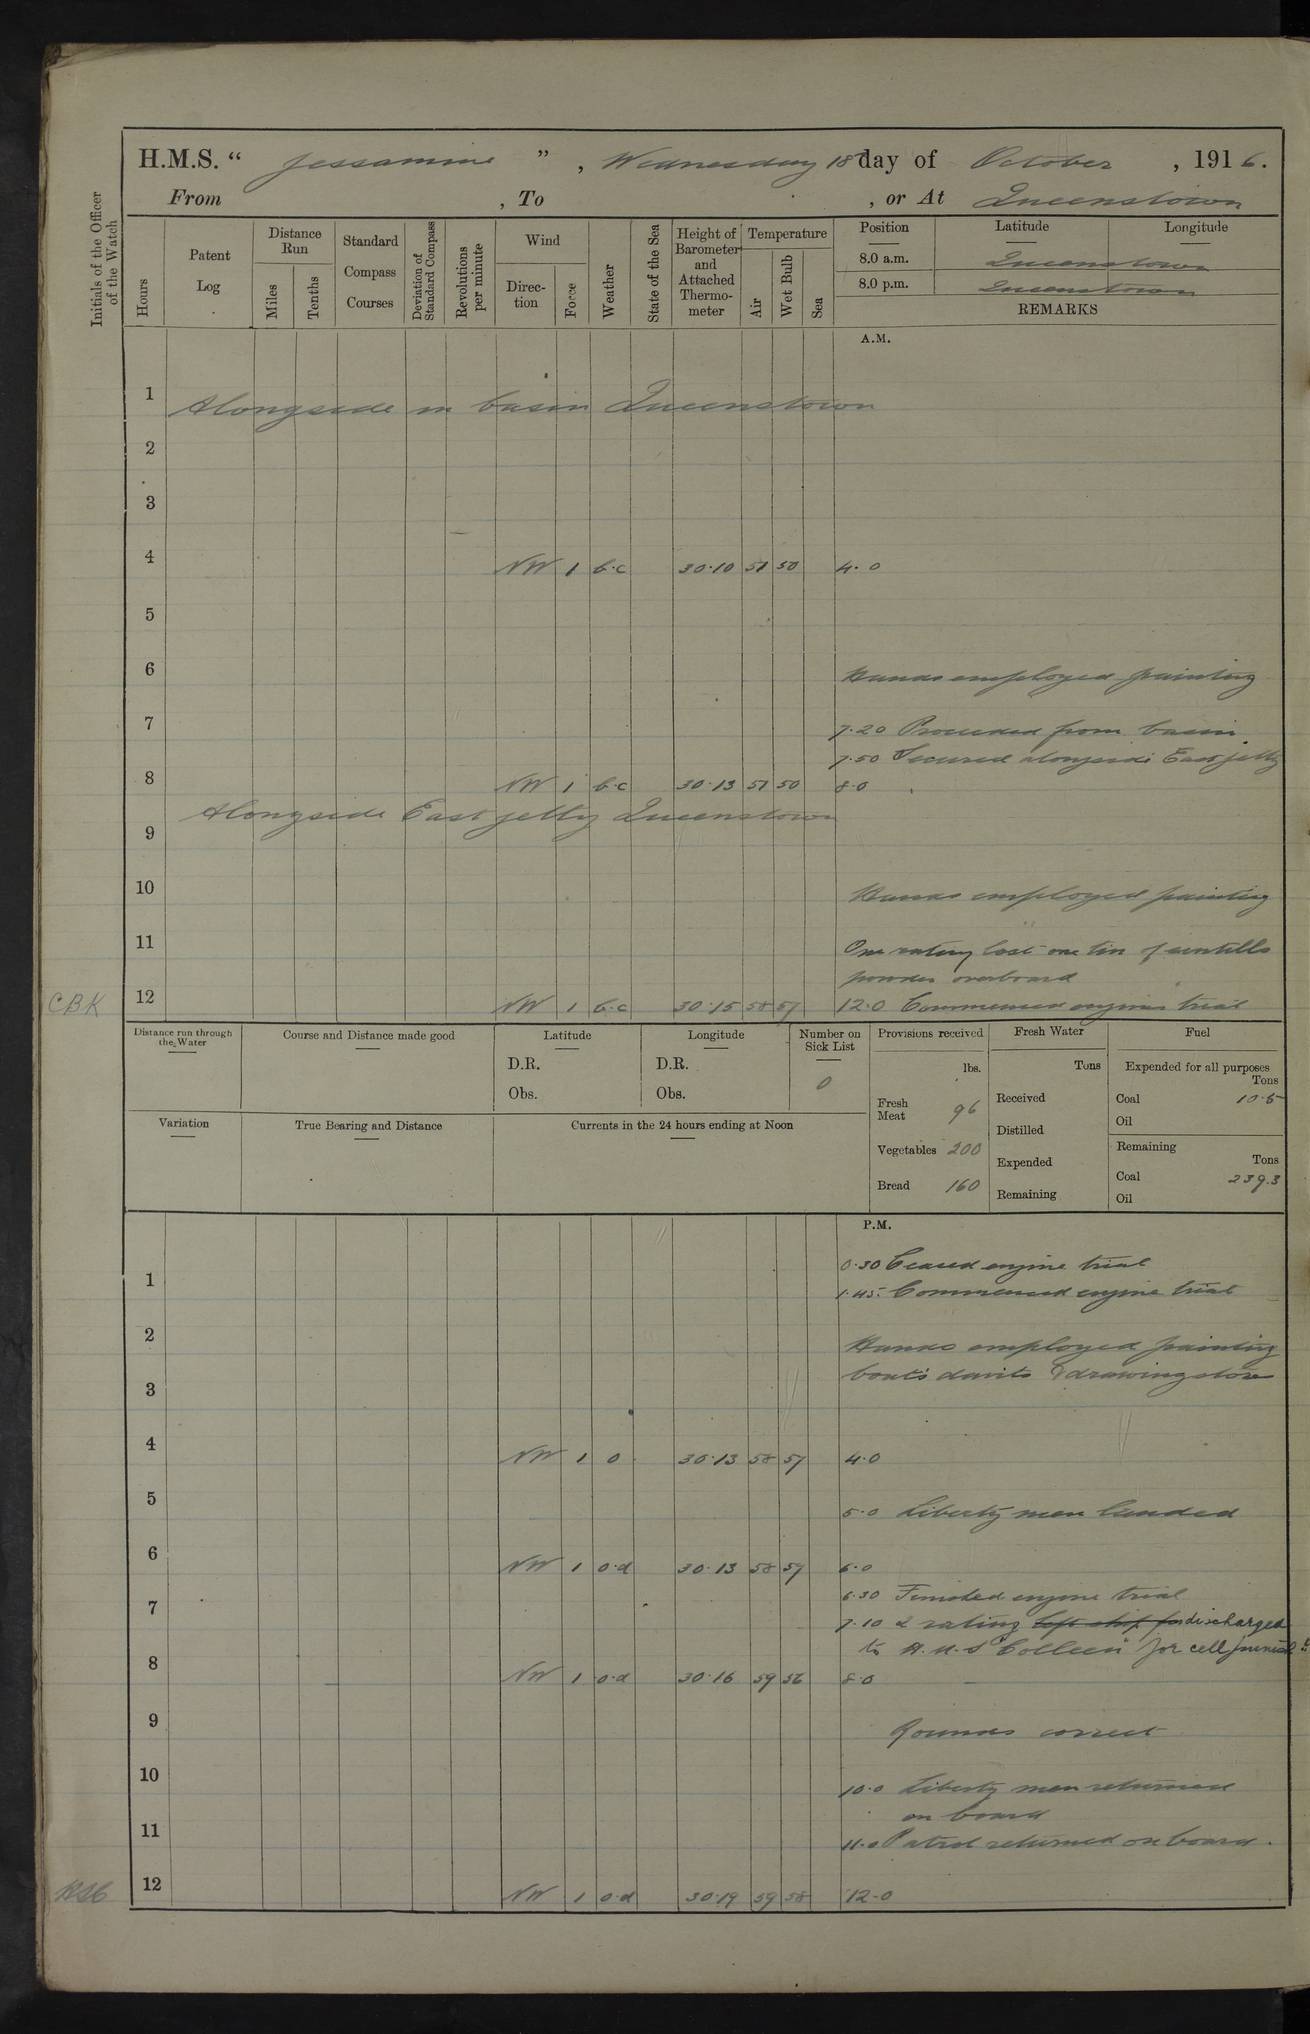 H.M.S. “ Jessamine ” , Wednesday 18th day of October , 1916.
From , To , or At Queenstown
Initials of the Officer of the Watch
Hours
Patent Log
Distance Run
Miles
Tenths
Standard Compass Courses
Deviation of Standard Compass
Revolutions per minute
Wind
Direction
Force
Weather
State of the Sea
Height of Barometer and Attached Thermometer
Temperature
Air
Wet Bulb
Sea
Position Latitude Longitude
8.0 a.m. Queenstown
8.0 p.m. Queenstown
REMARKS
A.M.
1 Alongside in basin Queenstown
2
3
4 NW 1 b.c 30.10 51 50 4.0
5
6 Hands employed painting
7 7.20 Proceeded from basin.
7.50 Secured alongside East jetty
8 NW 1 b.c 30.13 51 50 8.0
Alongside East jetty Queenstown
9
10 Hands employed painting
11 One rating lost one tin of
powder overboard
CBK 12 NW 1 b.c 30.15 58 57 12.0 Commenced engine trial
Distance run through the Water
Course and Distance made good
Latitude
D.R.
Obs.
Longitude
D.R.
Obs.
Number on Sick List
0
Provisions received
lbs.
Fresh Meat 96
Vegetables 200
Bread 160
Fresh Water
Tons
Received
Distilled
Expended
Remaining
Fuel
Expended for all purposes
Tons
Coal 10.5
Oil
Remaining
Tons
Coal 239.3
Oil
Variation
True Bearing and Distance
Currents in the 24 hours ending at Noon
P.M.
0.30 Ceased engine trial
1
1.45. Commenced engine trial
2 Hands employed painting
boat's davits & drawing stores
3
4 NW 1 o 30.13 58 57 4.0
5 5.0 Liberty men landed
6 NW 1 o.d 30.13 58 57 6.0
6.30 Finished engine trial
7
7.10 2 rating left ship for discharged
to H.M.S "Colleen" for cell
8 NW 1 o.d 30.16 59 56 8.0
9 Rounds correct
10 10.0 Liberty men returned
on board
11 11.0 Patrol returned on board.
12 NW 1 o.d 30.19 59 58 12.0